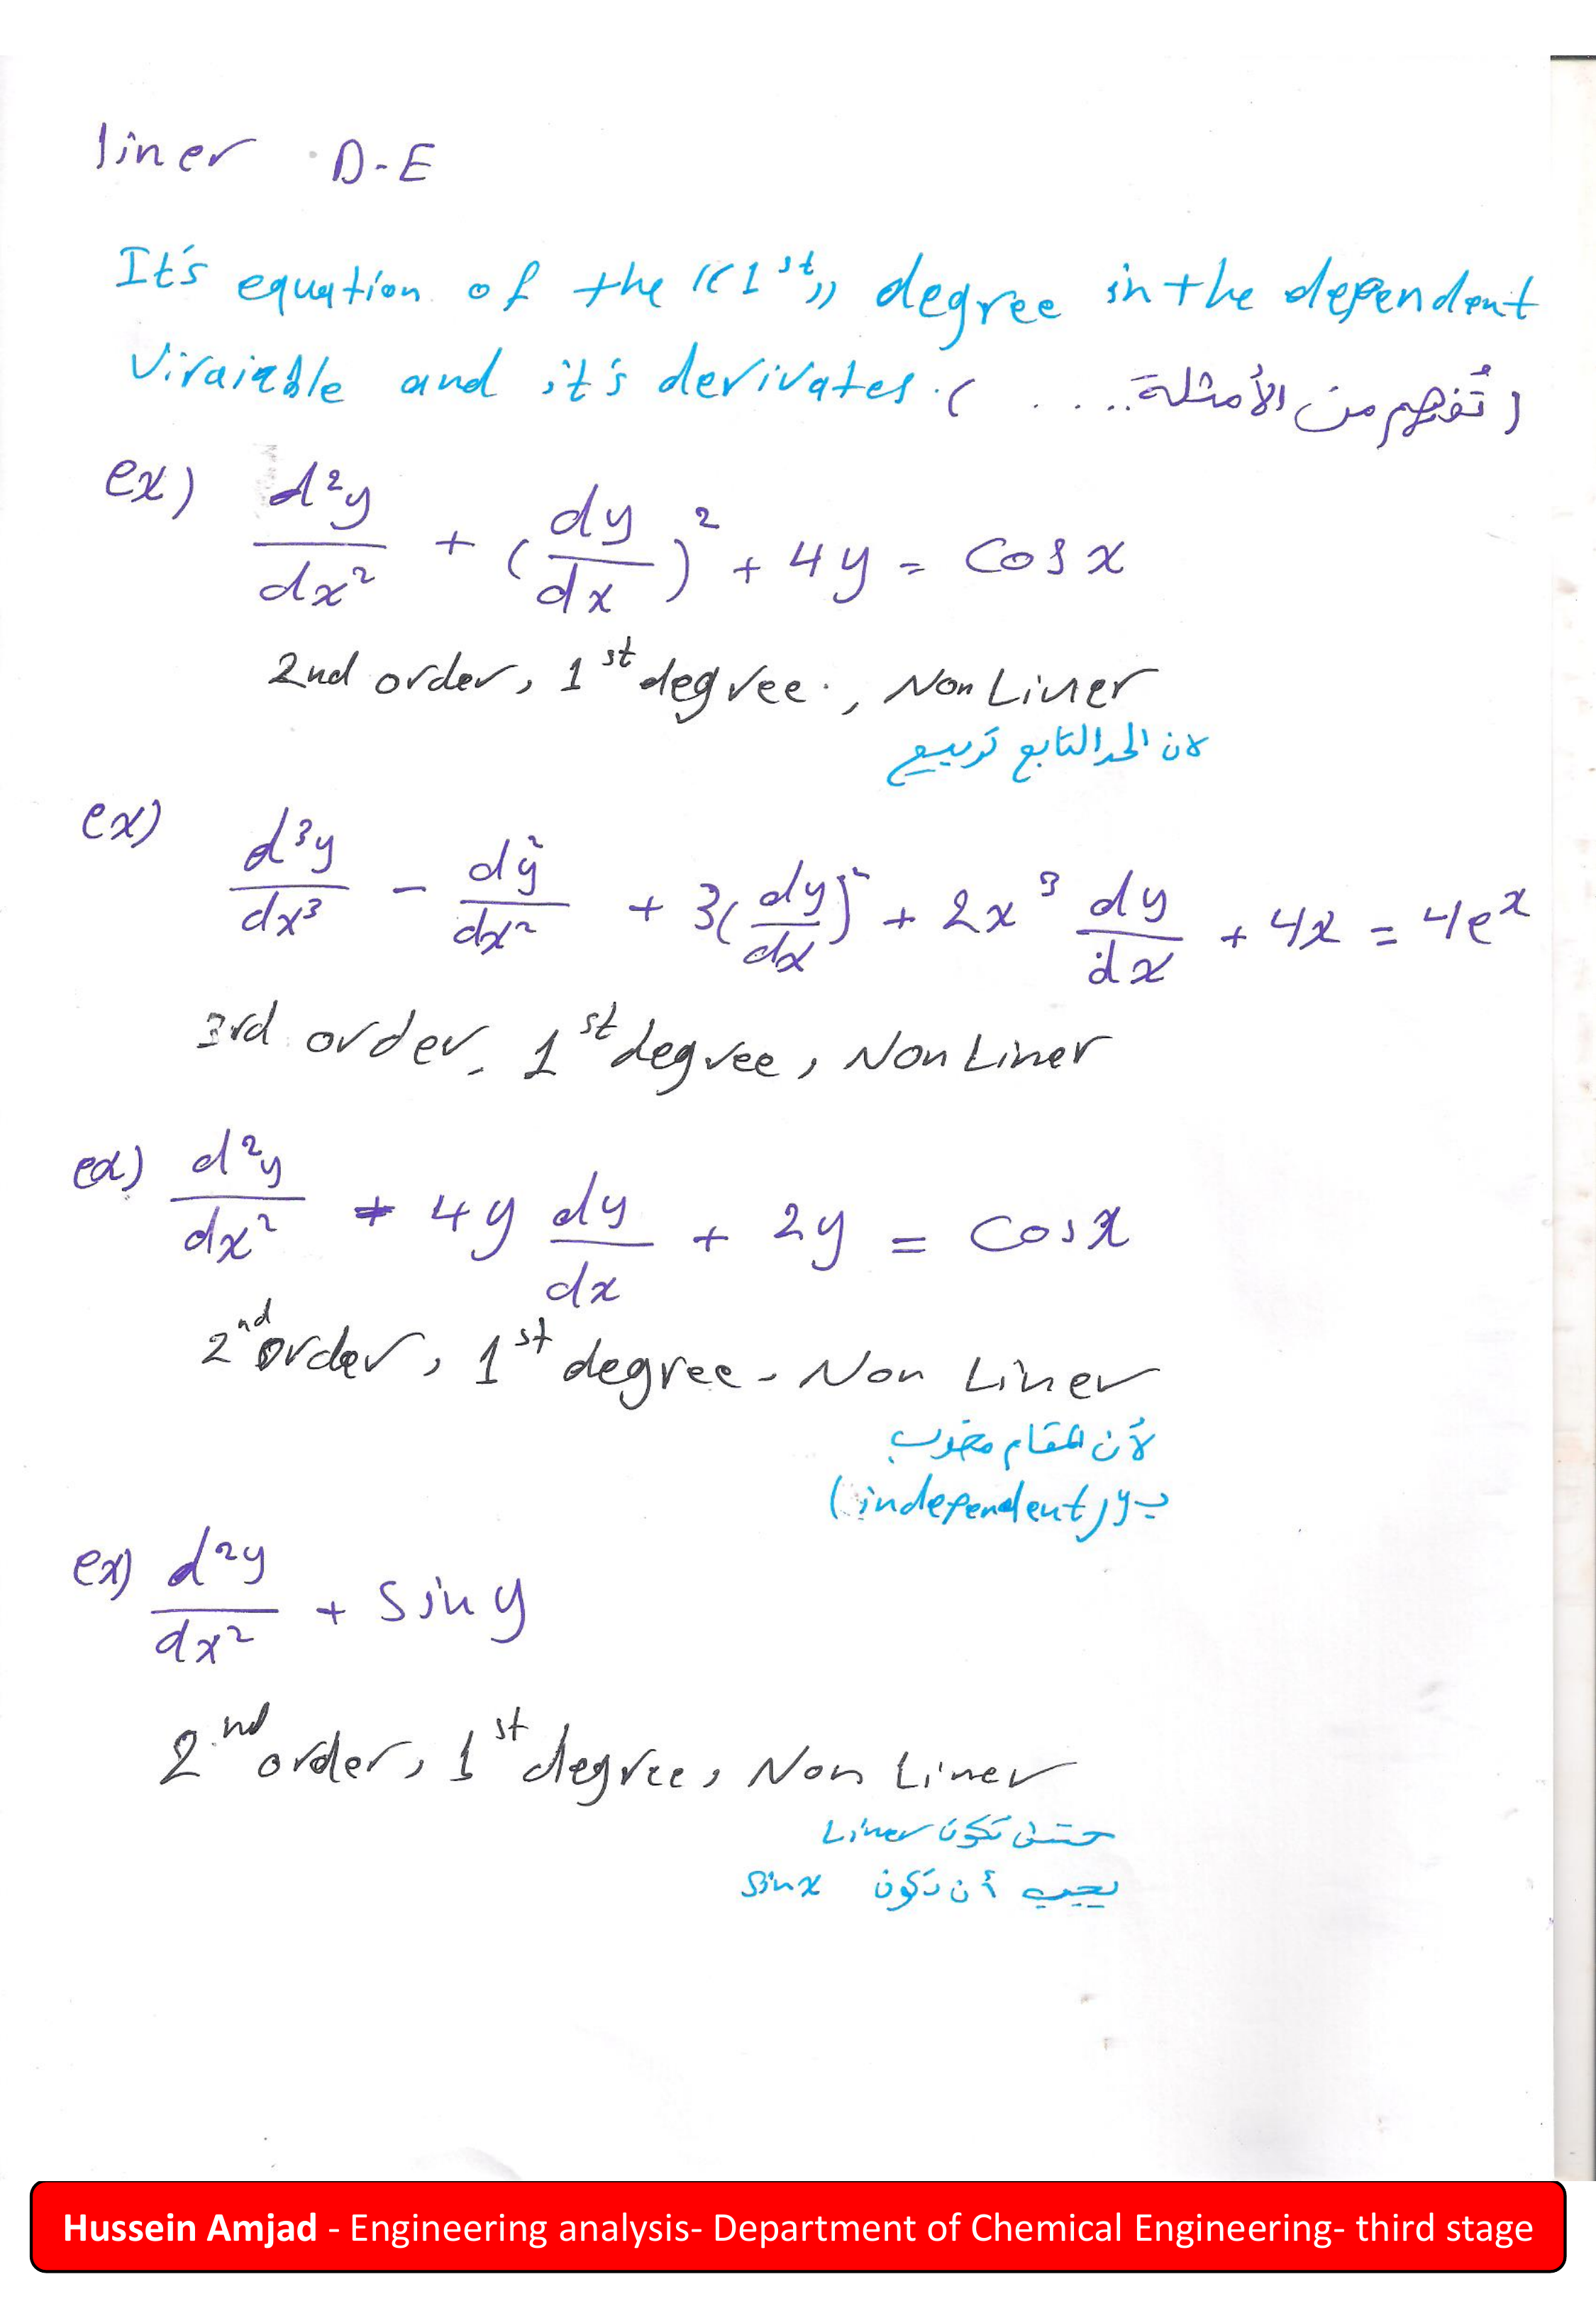 liner D-E
It's equation of the «1st» degree in the dependent
Viraiable and it's derivates. (تُفهم من الأمثلة....)
ex) d²y/dx² + (dy/dx)² + 4y = Cosx
2nd order, 1st degree., Non Liner
لان الحد التابع تربيع
ex) d³y/dx³ - dy²/dx² + 3(dy/dx)² + 2x³ dy/dx + 4x = 4eˣ
3rd order, 1st degree, Non Liner
ex) d²y/dx² + 4y dy/dx + 2y = Cosx
2nd order, 1st degree - Non Liner
لأن المقام مضروب
بـ y (independent)
ex) d²y/dx² + Sin y
2nd order, 1st degree, Non Liner
حتى تكون Liner
يجب أن تكون Sinx
Hussein Amjad - Engineering analysis- Department of Chemical Engineering- third stage